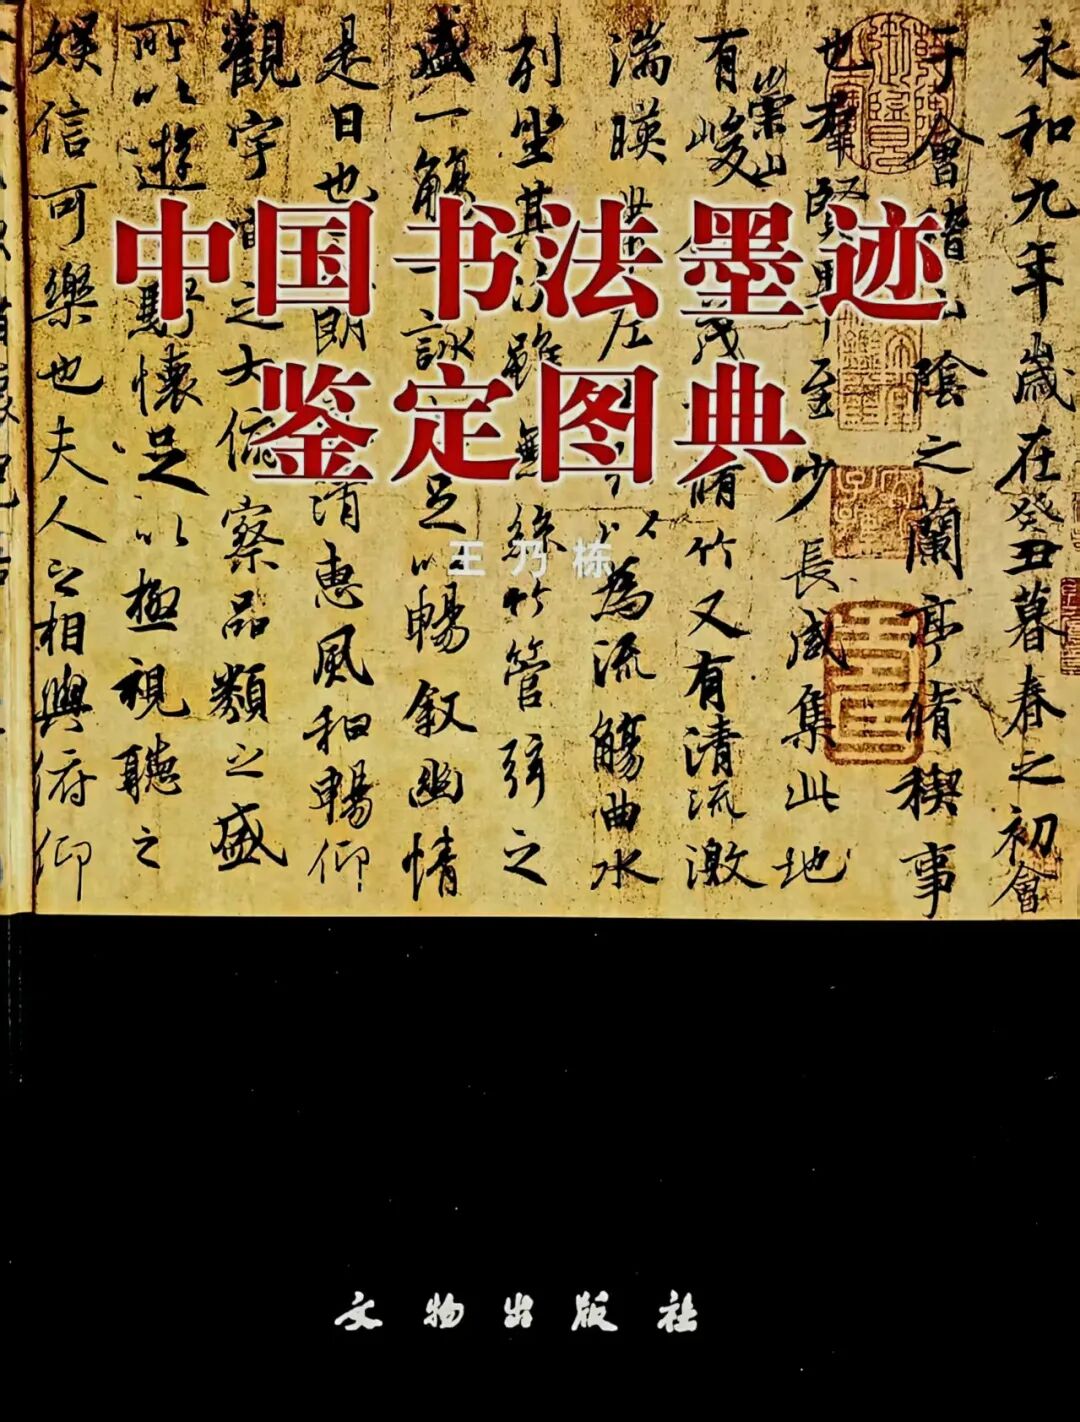 中国书法墨迹
鉴定图典
王乃栋
永和九年歲在癸丑暮春之初會
于會稽山陰之蘭亭脩稧事
也羣賢畢至少長咸集此地
有崇山峻茂脩竹又有清流激
湍暎帶左以為流觴曲水
列坐其次雖無絲竹管弦之
盛一觴一詠足以暢敘幽情
是日也朗清惠風和暢仰
觀宇宙之大俯察品類之盛
所以遊騁懷足以極視聽之
娛信可樂也夫人之相與俯仰
文物出版社